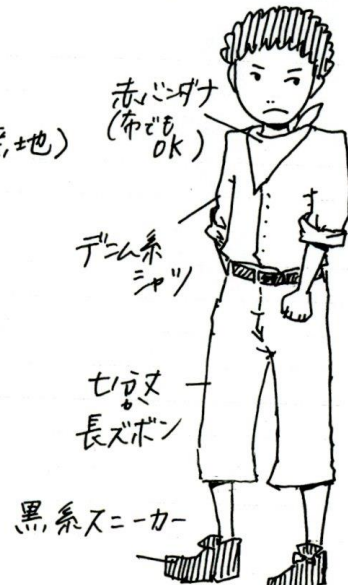 赤バンダナ
(布でも
OK)
地)
デニム系
シャツ
七分丈
か
長ズボン
黒系スニーカー